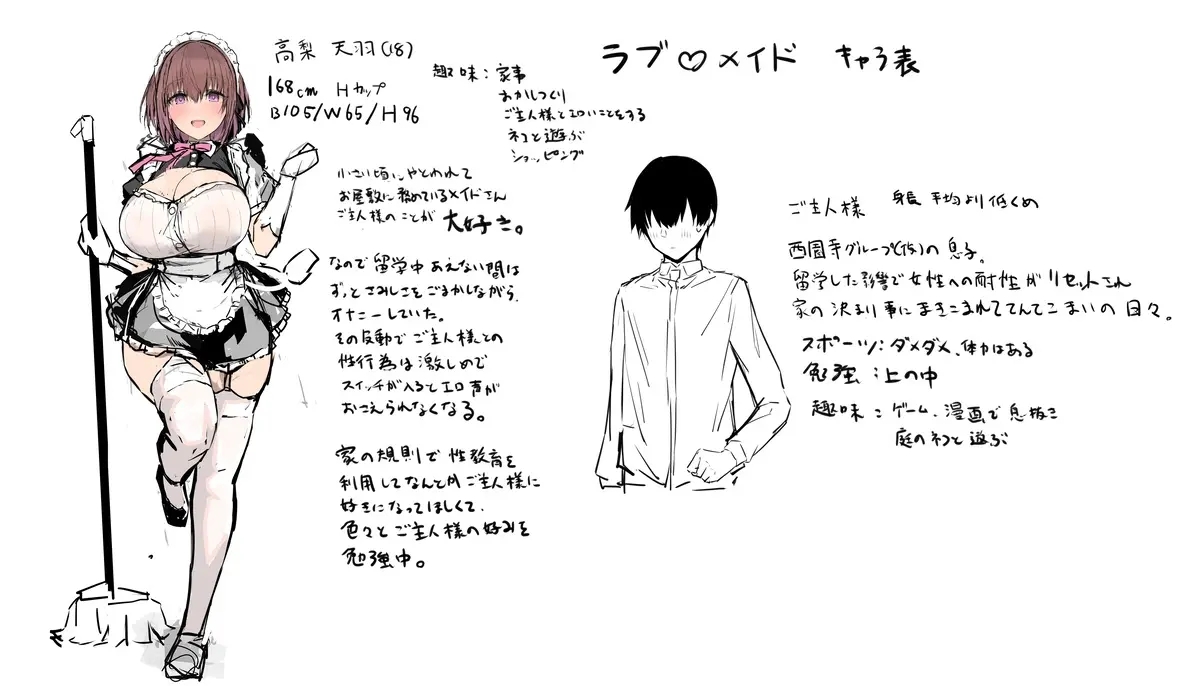 ラブ♡メイド キャラ表
高梨 天羽(18)
168cm Hカップ
B105/W65/H96
趣味:家事
おかしつくり
ご主人様とエロいことをする
ネコと遊ぶ
ショッピング
小さい頃にやとわれて
お屋敷に務めているメイドさん
ご主人様のことが 大好き。
なので留学中あえない間は
ずっとさみしさをごまかしながら
オナニーしていた。
その反動でご主人様との
性行為は激しめで
スイッチが入るとエロ声が
おこえられなくなる。
家の規則で性教育を
利用してなんとかご主人様に
好きになってほしくて、
色々とご主人様の好みを
勉強中。
ご主人様 身長 平均より低くめ
西園寺グループ(仮)の息子。
留学した影響で女性への耐性がリセットされ
家の決まり事にまきこまれててんてこまいの日々。
スポーツ:ダメダメ、体力はある
勉強:上の中
趣味:ゲーム、漫画で息抜き
庭のネコと遊ぶ